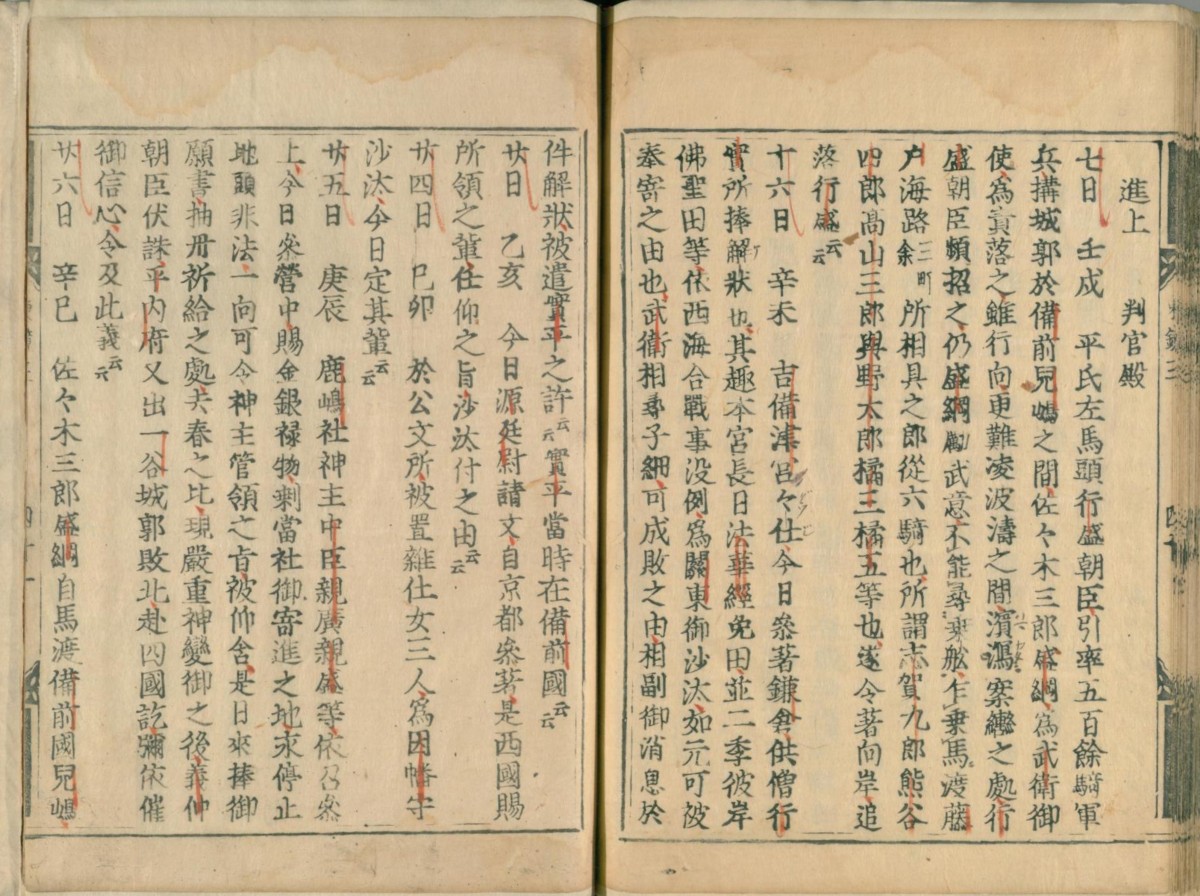 進上　判官殿
七日　壬戌　平氏左馬頭行盛朝臣引率五百餘騎軍
兵搆城郭於備前兒嶋之間佐々木三郎盛綱為武衛御
使為責落之雖行向更難凌波濤之間濱潟案轡之處行
盛朝臣頻招之仍盛綱勵武意不能尋乗舩乍乗馬渡藤
戸海路三町余所相具之郎從六騎也所謂志賀九郎熊谷
四郎髙山三郎與野太郎橘三橘五等也遂令著向岸追
落行盛云云
十六日　辛未　吉備津宮々仕今日叅著鎌倉供僧行
實所捧解狀也其趣本宮長日法華經免田並二季彼岸
佛聖田等依西海合戰事没倒為關東御沙汰如元可被
奉寄之由也武衛相尋子細可成敗之由相副御消息於
件解狀被遣實平之許云云實平當時在備前國云云
廿日　乙亥　今日源廷尉請文自京都叅著是西國賜
所領之輩仕仰之旨沙汰付之由云云
廿四日　己卯　於公文所被置雜仕女三人為因幡守
沙汰今日定其輩云云
廿五日　庚辰　鹿嶋社神主中臣親廣親盛等依召叅
上今日叅營中賜金銀禄物剰當社御寄進之地永停止
地頭非法一向可令神主管領之旨被仰含是日來捧御
願書抽丹祈給之處去春之比現嚴重神變御之後義仲
朝臣伏誅平内府又出一谷城郭敗北赴四國訖彌依催
御信心令及此義云云
廿六日　辛巳　佐々木三郎盛綱自馬渡備前國兒嶋